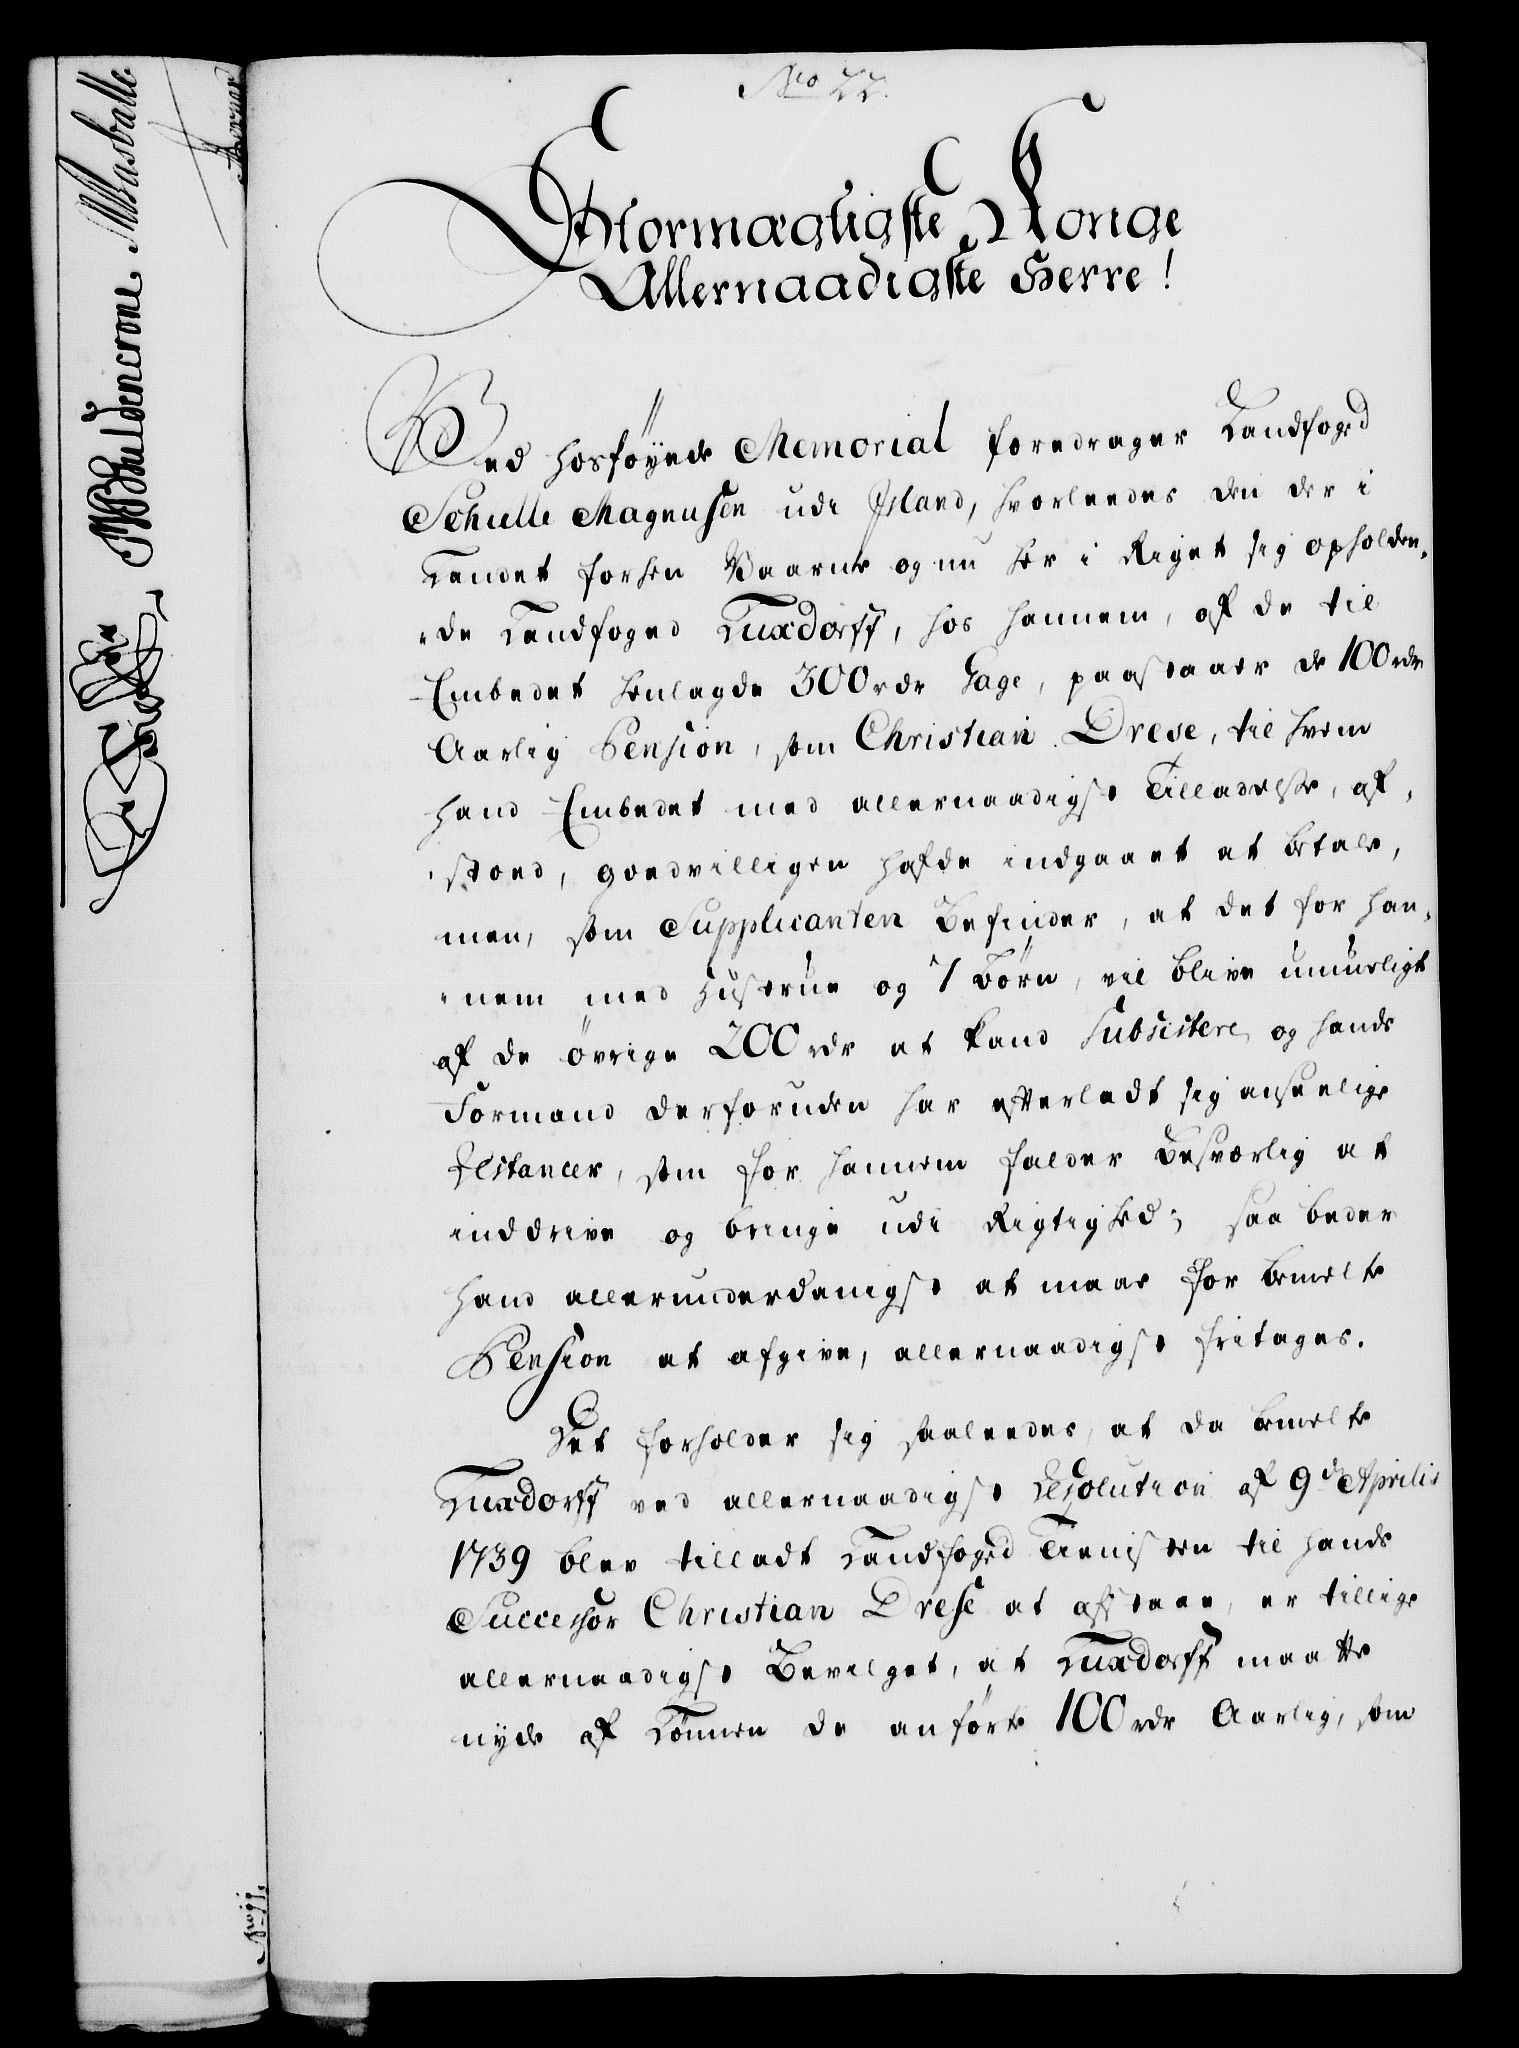 No 22.
Stormægtigste Konge
Allernaadigste Herre!
Ved hosføyede Memorial foredrager Landfoged
Schulle Magnusen udi Island, hvorleedes den der i
Landet forhen Værende og nu her i Riget sig opholden-
-de Landfoged Luxdorff, hos hannem, af de til
Embedet henlagde 300 rdr Gage, paastaaer de 100 rdr
Aarlig Pension, som Christian Drese, til hvem
hand Embedet med allernaadigst Tilladelse, af-
-stoed, goedvilligen hafde indgaaet at betale,
men, som Supplicanten befinder, at det for han-
-nem med Hustrue og 7 Børn, vil blive umueligt
af de øvrige 200 rdr at kand Subsistere, og hands
Formand derforuden har efterladt sig anseelige
Restancer, som for hannem falder besværlig at
inddrive og bringe udi Rigtighed; saa beder
hand allerunderdanigst at maae for bemelte
Pension at afgive, allernaadigst fritages.
Det forholder sig saaleedes, at da bemelte
Luxdorff ved allernaadigst Resolution af 9de Aprilis
1739 blev tilladt Landfoged Tienisten til hands
Successor Christian Drese at afstaae, er tillige
allernaadigst Bevilget, at Luxdorff maatte
nyde af Lønnen de anførte 100 rdr Aarlig, som